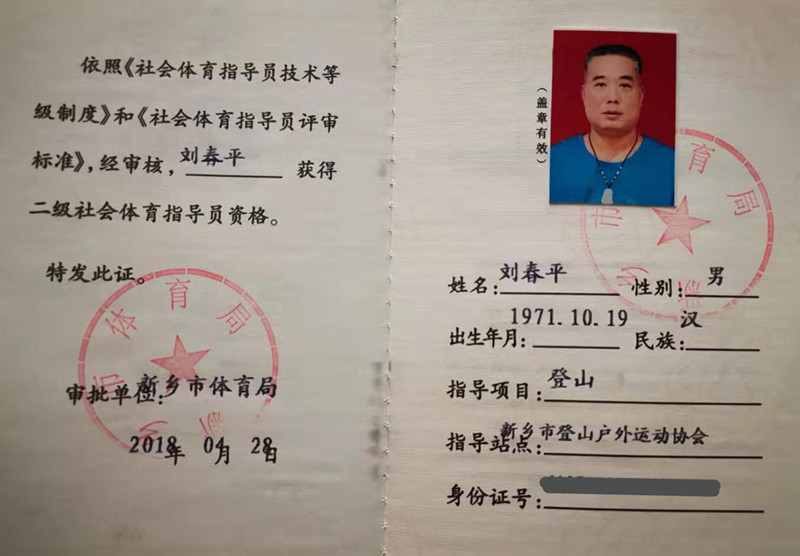 依照《社会体育指导员技术等
级制度》和《社会体育指导员评审
标准》，经审核，刘春平 获得
二级社会体育指导员资格。
特发此证。
市体育局
审批单位：新乡市体育局
2018年 04月 28日
（盖章有效）
市 育局
姓名：刘春平 性别：男
出生年月：1971.10.19 民族：汉
指导项目：登山
指导站点：新乡市登山户外运动协会
身份证号：